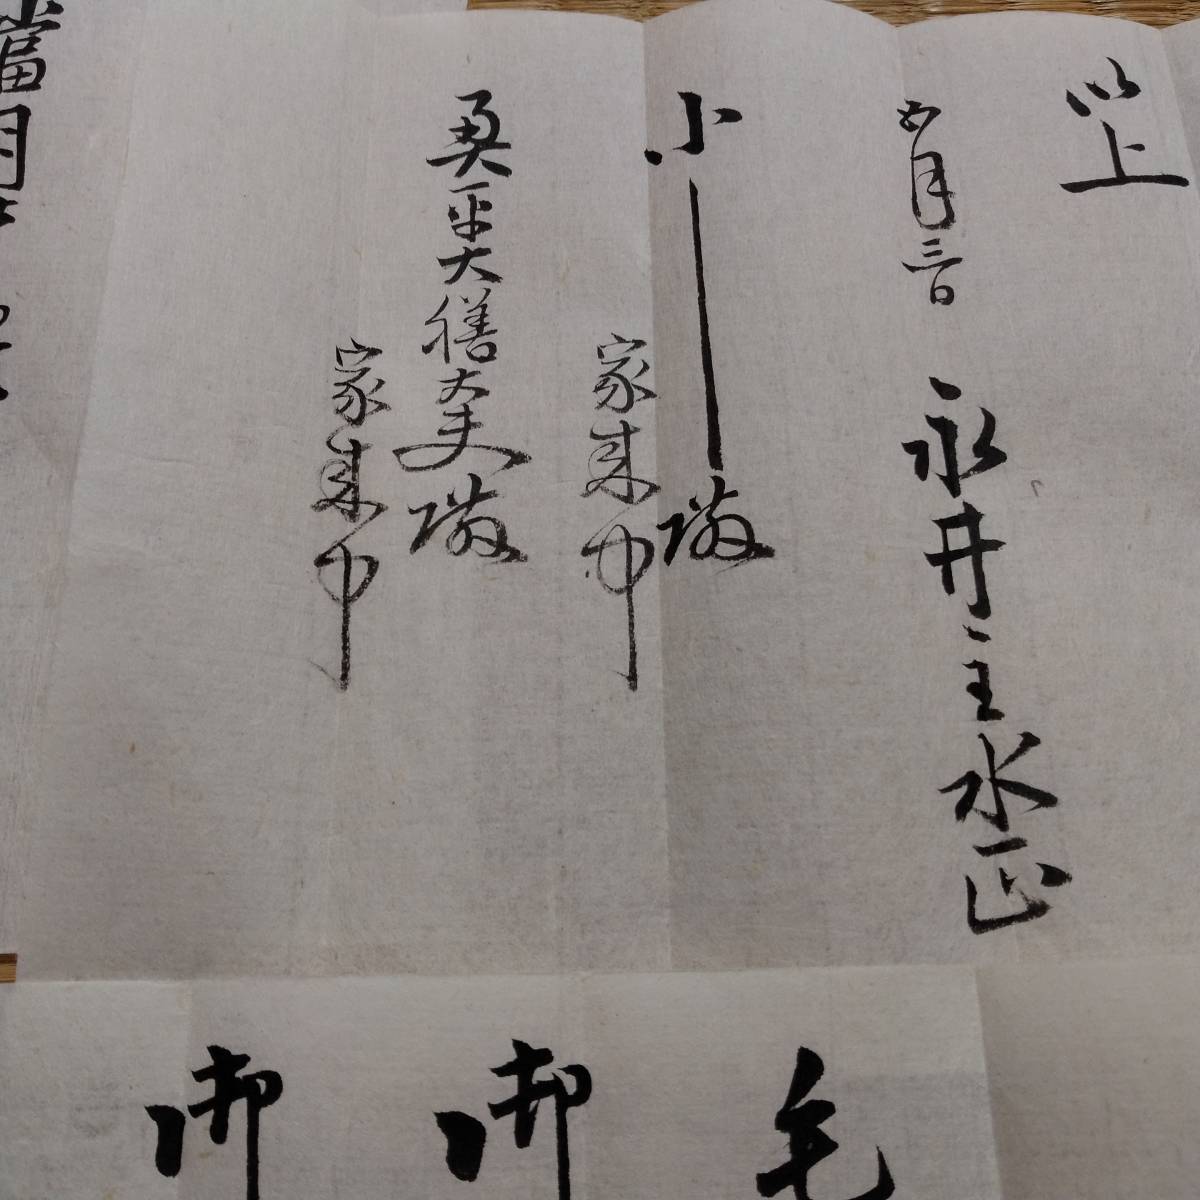 以上
五月三日
永井主水正
小―様
家来中
奥平大膳大夫様
家来中
當
毛
御
御